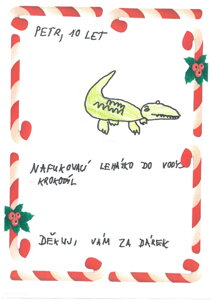 PETR, 10 LET
NAFUKOVACÍ LEHÁTKO DO VODY
KROKODÝL
DĚKUJI VÁM ZA DÁREK